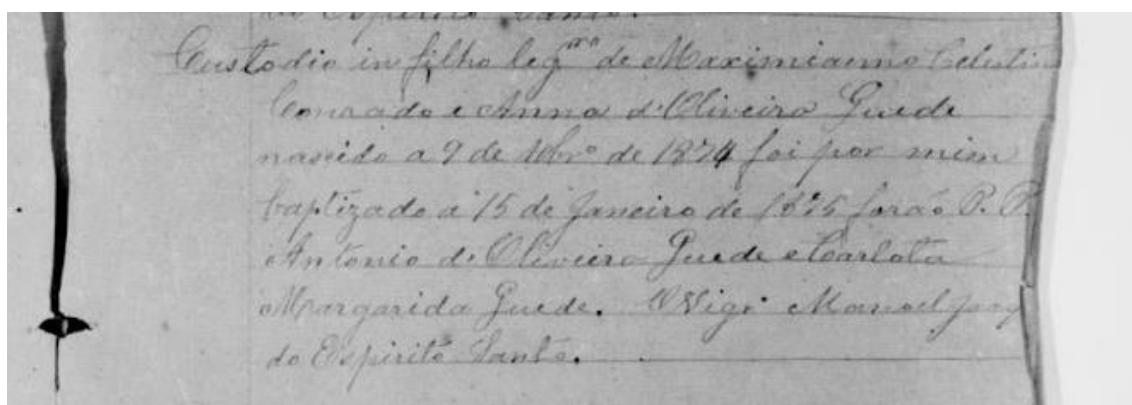 do Espirito Santo.
Custodio in filho legmo de Maximianno Celesti
Conrado e Anna d'Oliveira Guede
nascido a 9 de 10bro de 1874 foi por mim
baptizado a 15 de Janeiro de 1875 forão P. P.
Antonio d'Oliveira Guede e Carlota
Margarida Guede. O Vigr Manoel Joaq
do Espirito Santo.